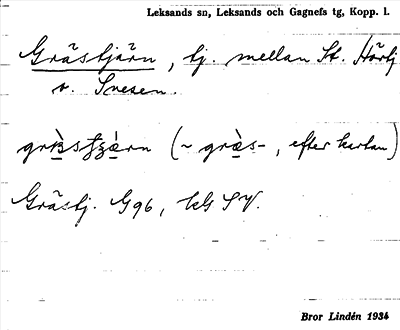 Leksands sn, Leksands och Gagnefs tg, Kopp. l.
Grästjärn, tj. mellan St. Härtj
o. Snesen.
(~ gräs-, efter kartan)
Grästj. G96, tG SV.
Bror Lindén 1934